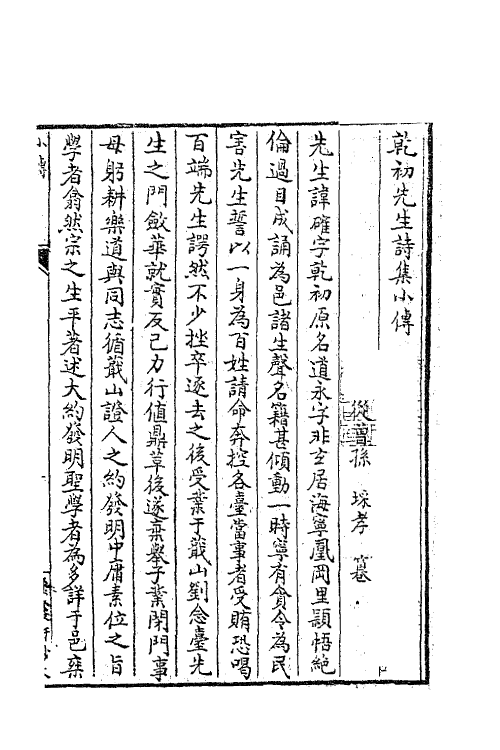 乾初先生詩集小傳
從曾孫 埰孝 纂
先生諱確字乾初原名道永字非玄居海寧凰岡里穎悟絶
倫過目成誦為邑諸生聲名籍甚傾動一時寧有貪令為民
害先生誓以一身為百姓請命奔控各臺當事者受賄恐喝
百端先生諤然不少挫卒逐去之後受業于蕺山劉念臺先
生之門斂華就實反己力行値鼎革後遂棄舉子業閉門事
母躬耕樂道與同志循蕺山證人之約發明中庸素位之旨
學者翕然宗之生平著述大約發明聖學者為多詳于邑乘
小傳